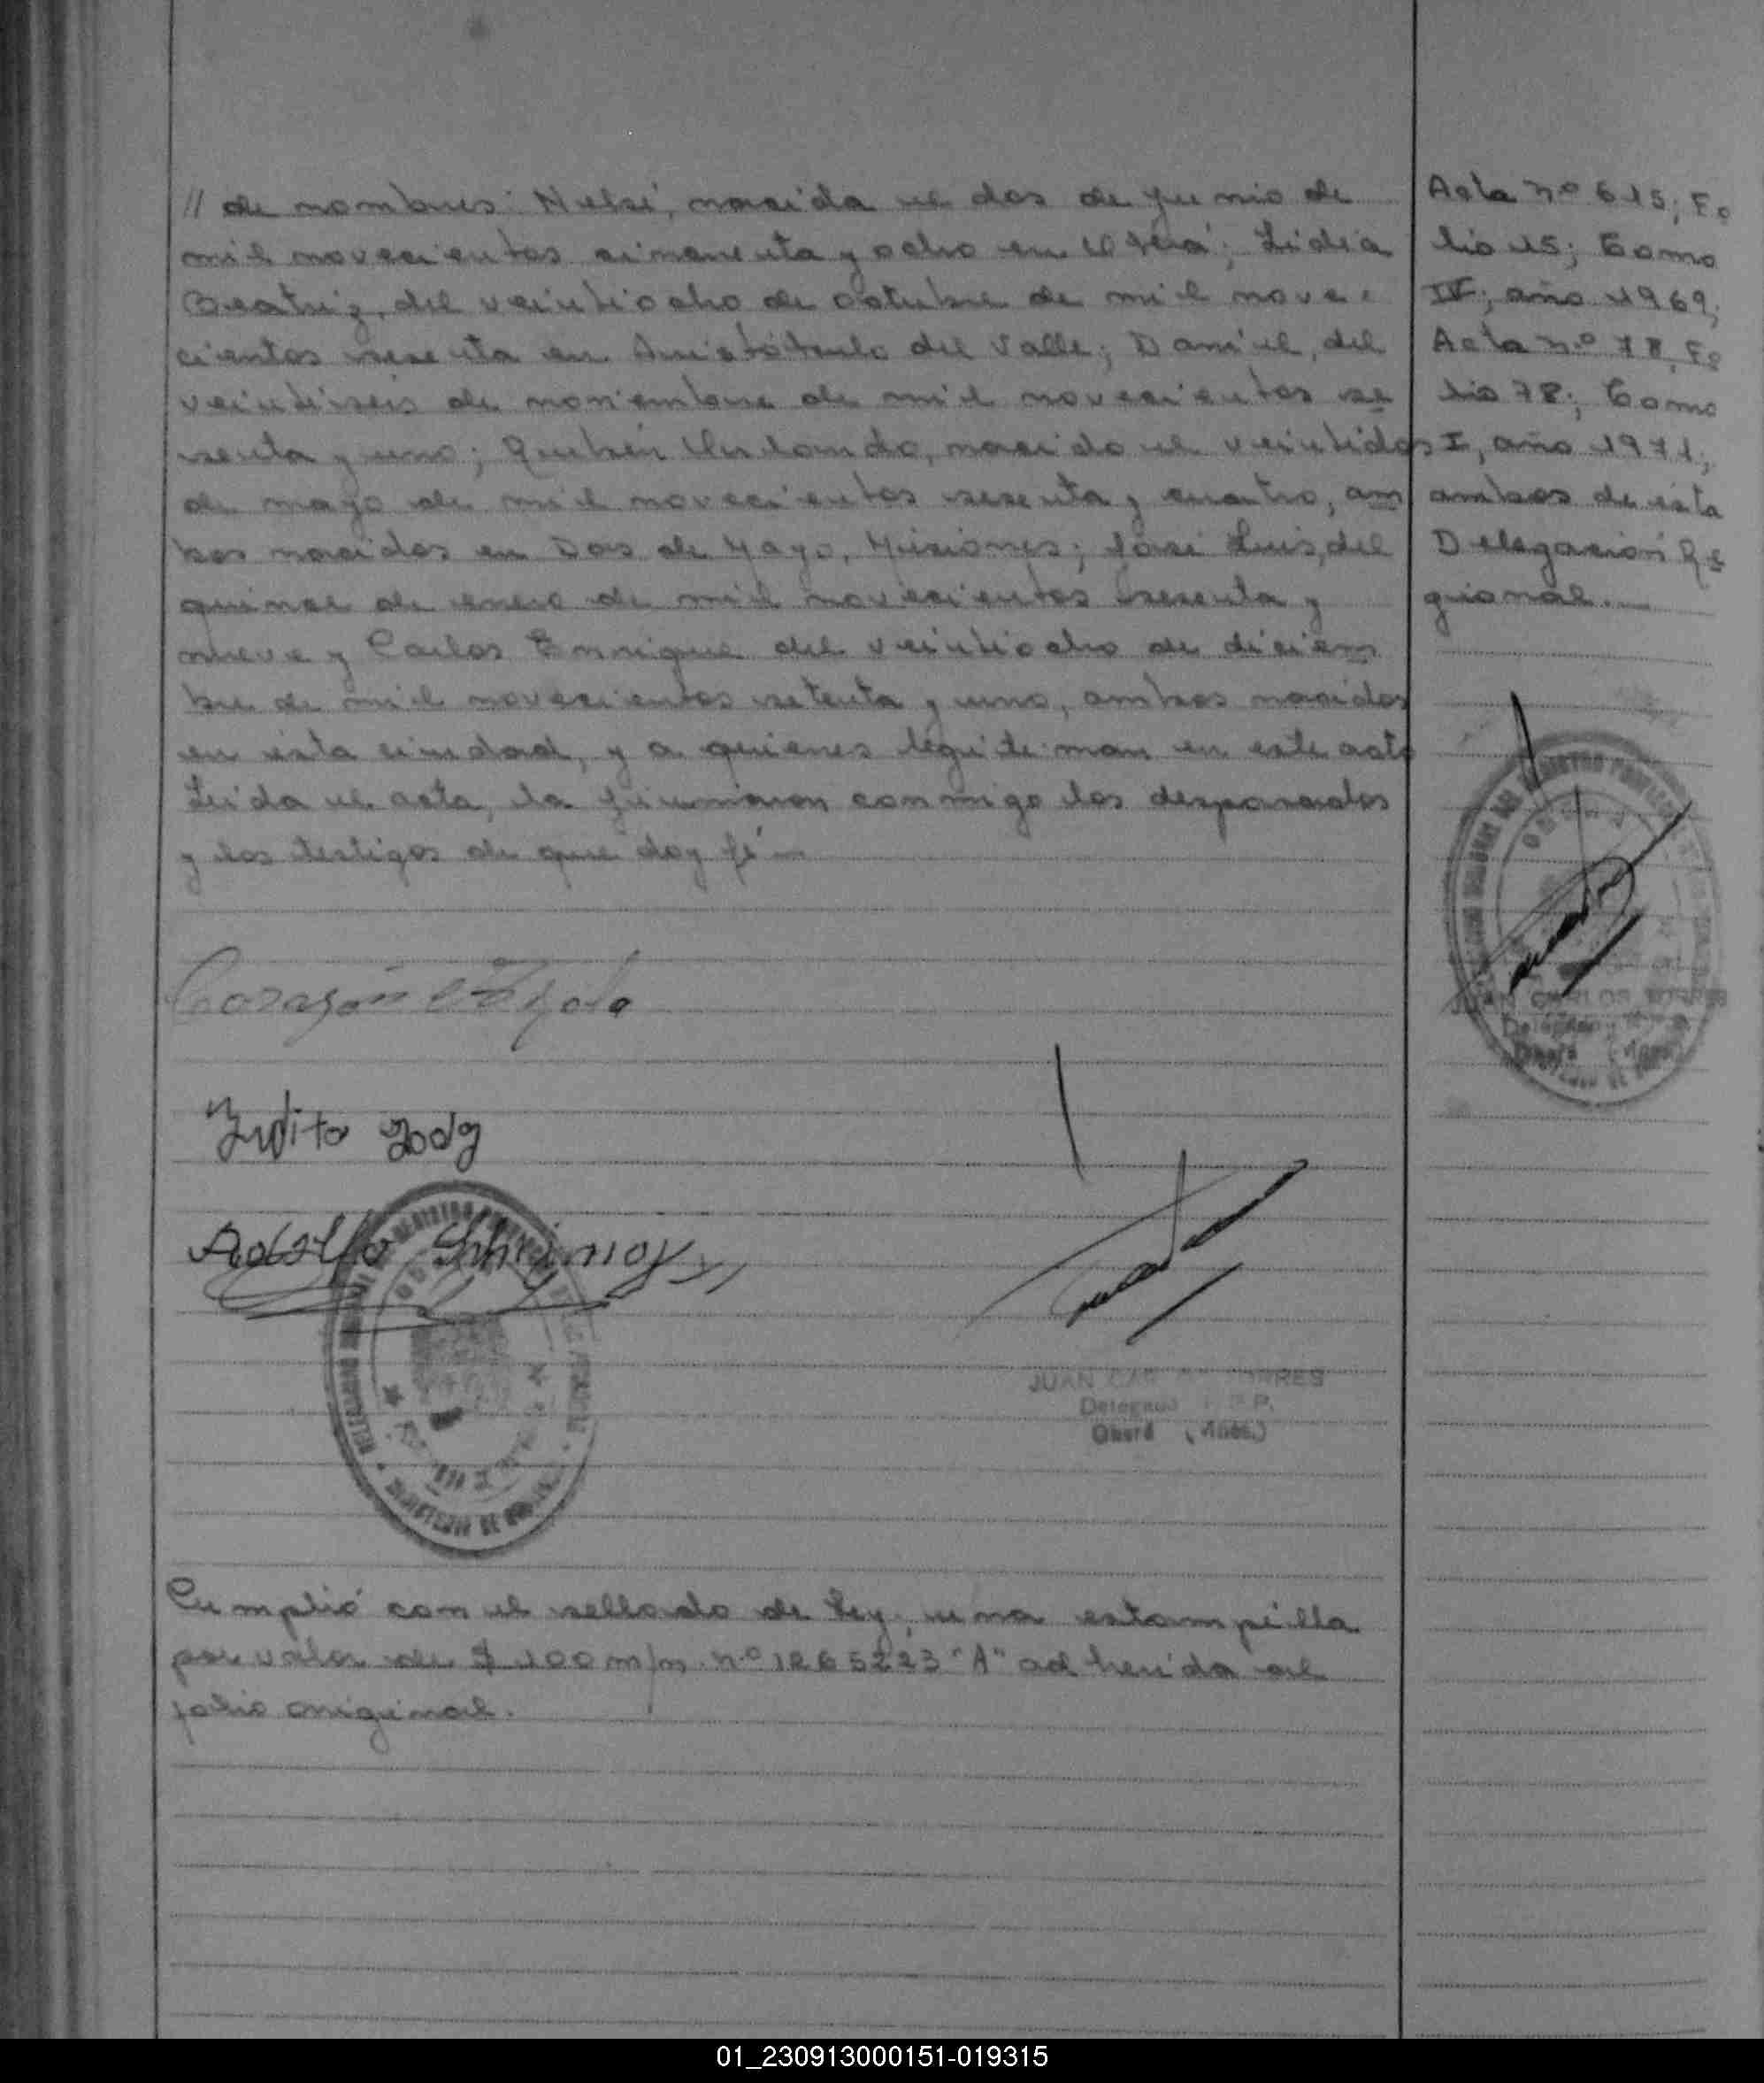 // de nombres: Nelsi, nacida el dos de junio de
mil novecientos cincuenta y ocho en Oberá; Lidia
Beatriz, del veintiocho de octubre de mil nove-
cientos sesenta en Aristóbulo del Valle; Daniel, del
veintiseis de noviembre de mil novecientos se
senta y uno; Rubén Orlando, nacido el veintidos
de mayo de mil novecientos sesenta y cuatro, am
bos nacidos en Dos de Mayo, Misiones; José Luis, del
quince de enero de mil novecientos sesenta y
nueve y Carlos Enrique del veintiocho de diciem
bre de mil novecientos setenta y uno, ambos nacidos
en esta ciudad, y a quienes legitiman en este acto
Leída el acta, la firmaron conmigo los desposados
y los testigos de que doy fé.—
Acta nº 615; Fo
lio 15; Tomo
IV; año 1969;
Acta nº 78, Fo
lio 78; Tomo
I, año 1971;
ambos de esta
Delegación Re
gional.—
JUAN CARLOS TORRES
Corazón
Adolfo
JUAN CAR TORRES
Delegado R. P. P.
Oberá (Mnes.)
Cumplió con el sellado de Ley, una estampilla
por valor de $ 100 m/n. nº 1265223 "A" adherida al
folio original.
01_230913000151-019315